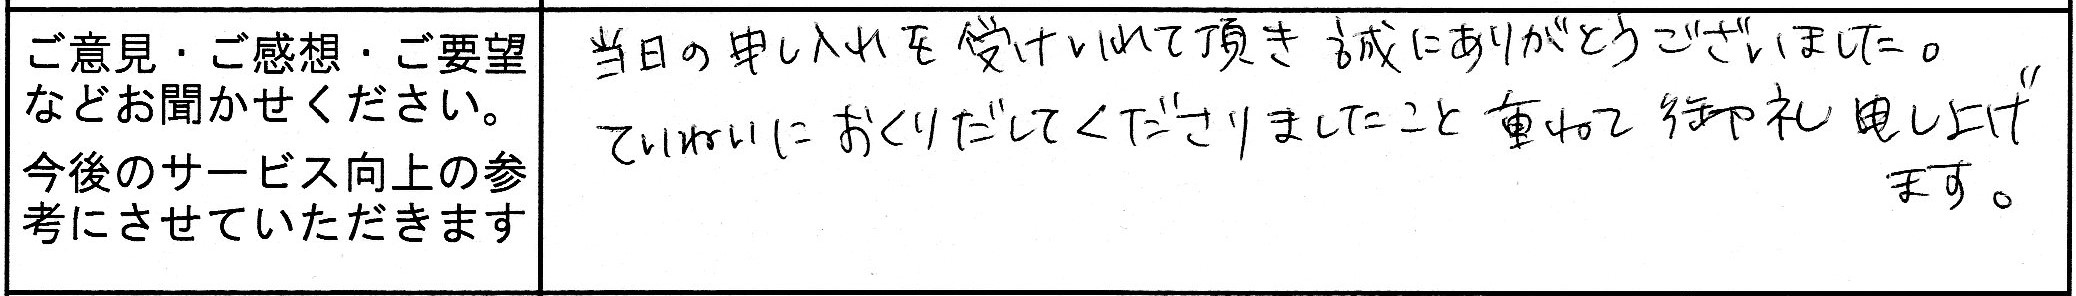 ご意見・ご感想・ご要望
などお聞かせください。
今後のサービス向上の参
考にさせていただきます
当日の申し入れを受けいれて頂き誠にありがとうございました。
ていねいにおくりだしてくださりましたこと重ねて御礼申し上げ
ます。